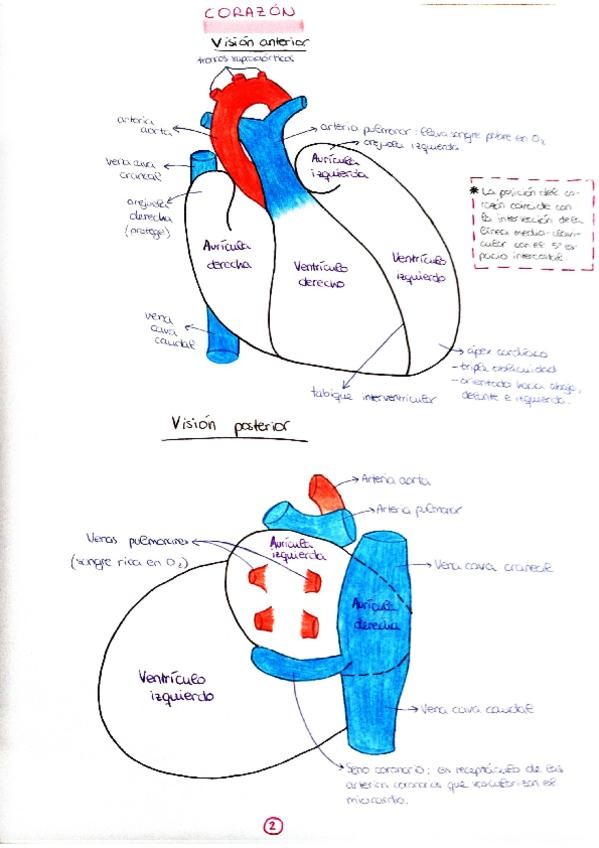 CORAZÓN
Visión anterior
troncos supraaórticos
arteria
aorta
arteria pulmonar: lleva sangre pobre en O2
orejuela izquierda
vena cava
craneal
Aurícula
izquierda
orejuela
derecha
(protege)
* La posición del co-
razón coincide con
la intersección de la
línea medio-clavi-
cular con el 5º es-
pacio intercostal
Aurícula
derecha
Ventrículo
derecho
Ventrículo
izquierdo
vena
cava
caudal
ápex cardíaco
- triple oblicuidad
- orientado hacia abajo,
delante e izquierda.
tabique interventricular
Visión posterior
Arteria aorta
Arteria pulmonar
Venas pulmonares
(sangre rica en O2)
Aurícula
izquierda
Vena cava craneal
Aurícula
derecha
Ventrículo
izquierdo
Vena cava caudal
Seno coronario: es receptáculo de las
arterias coronarias que vascularizan el
miocardio.
2